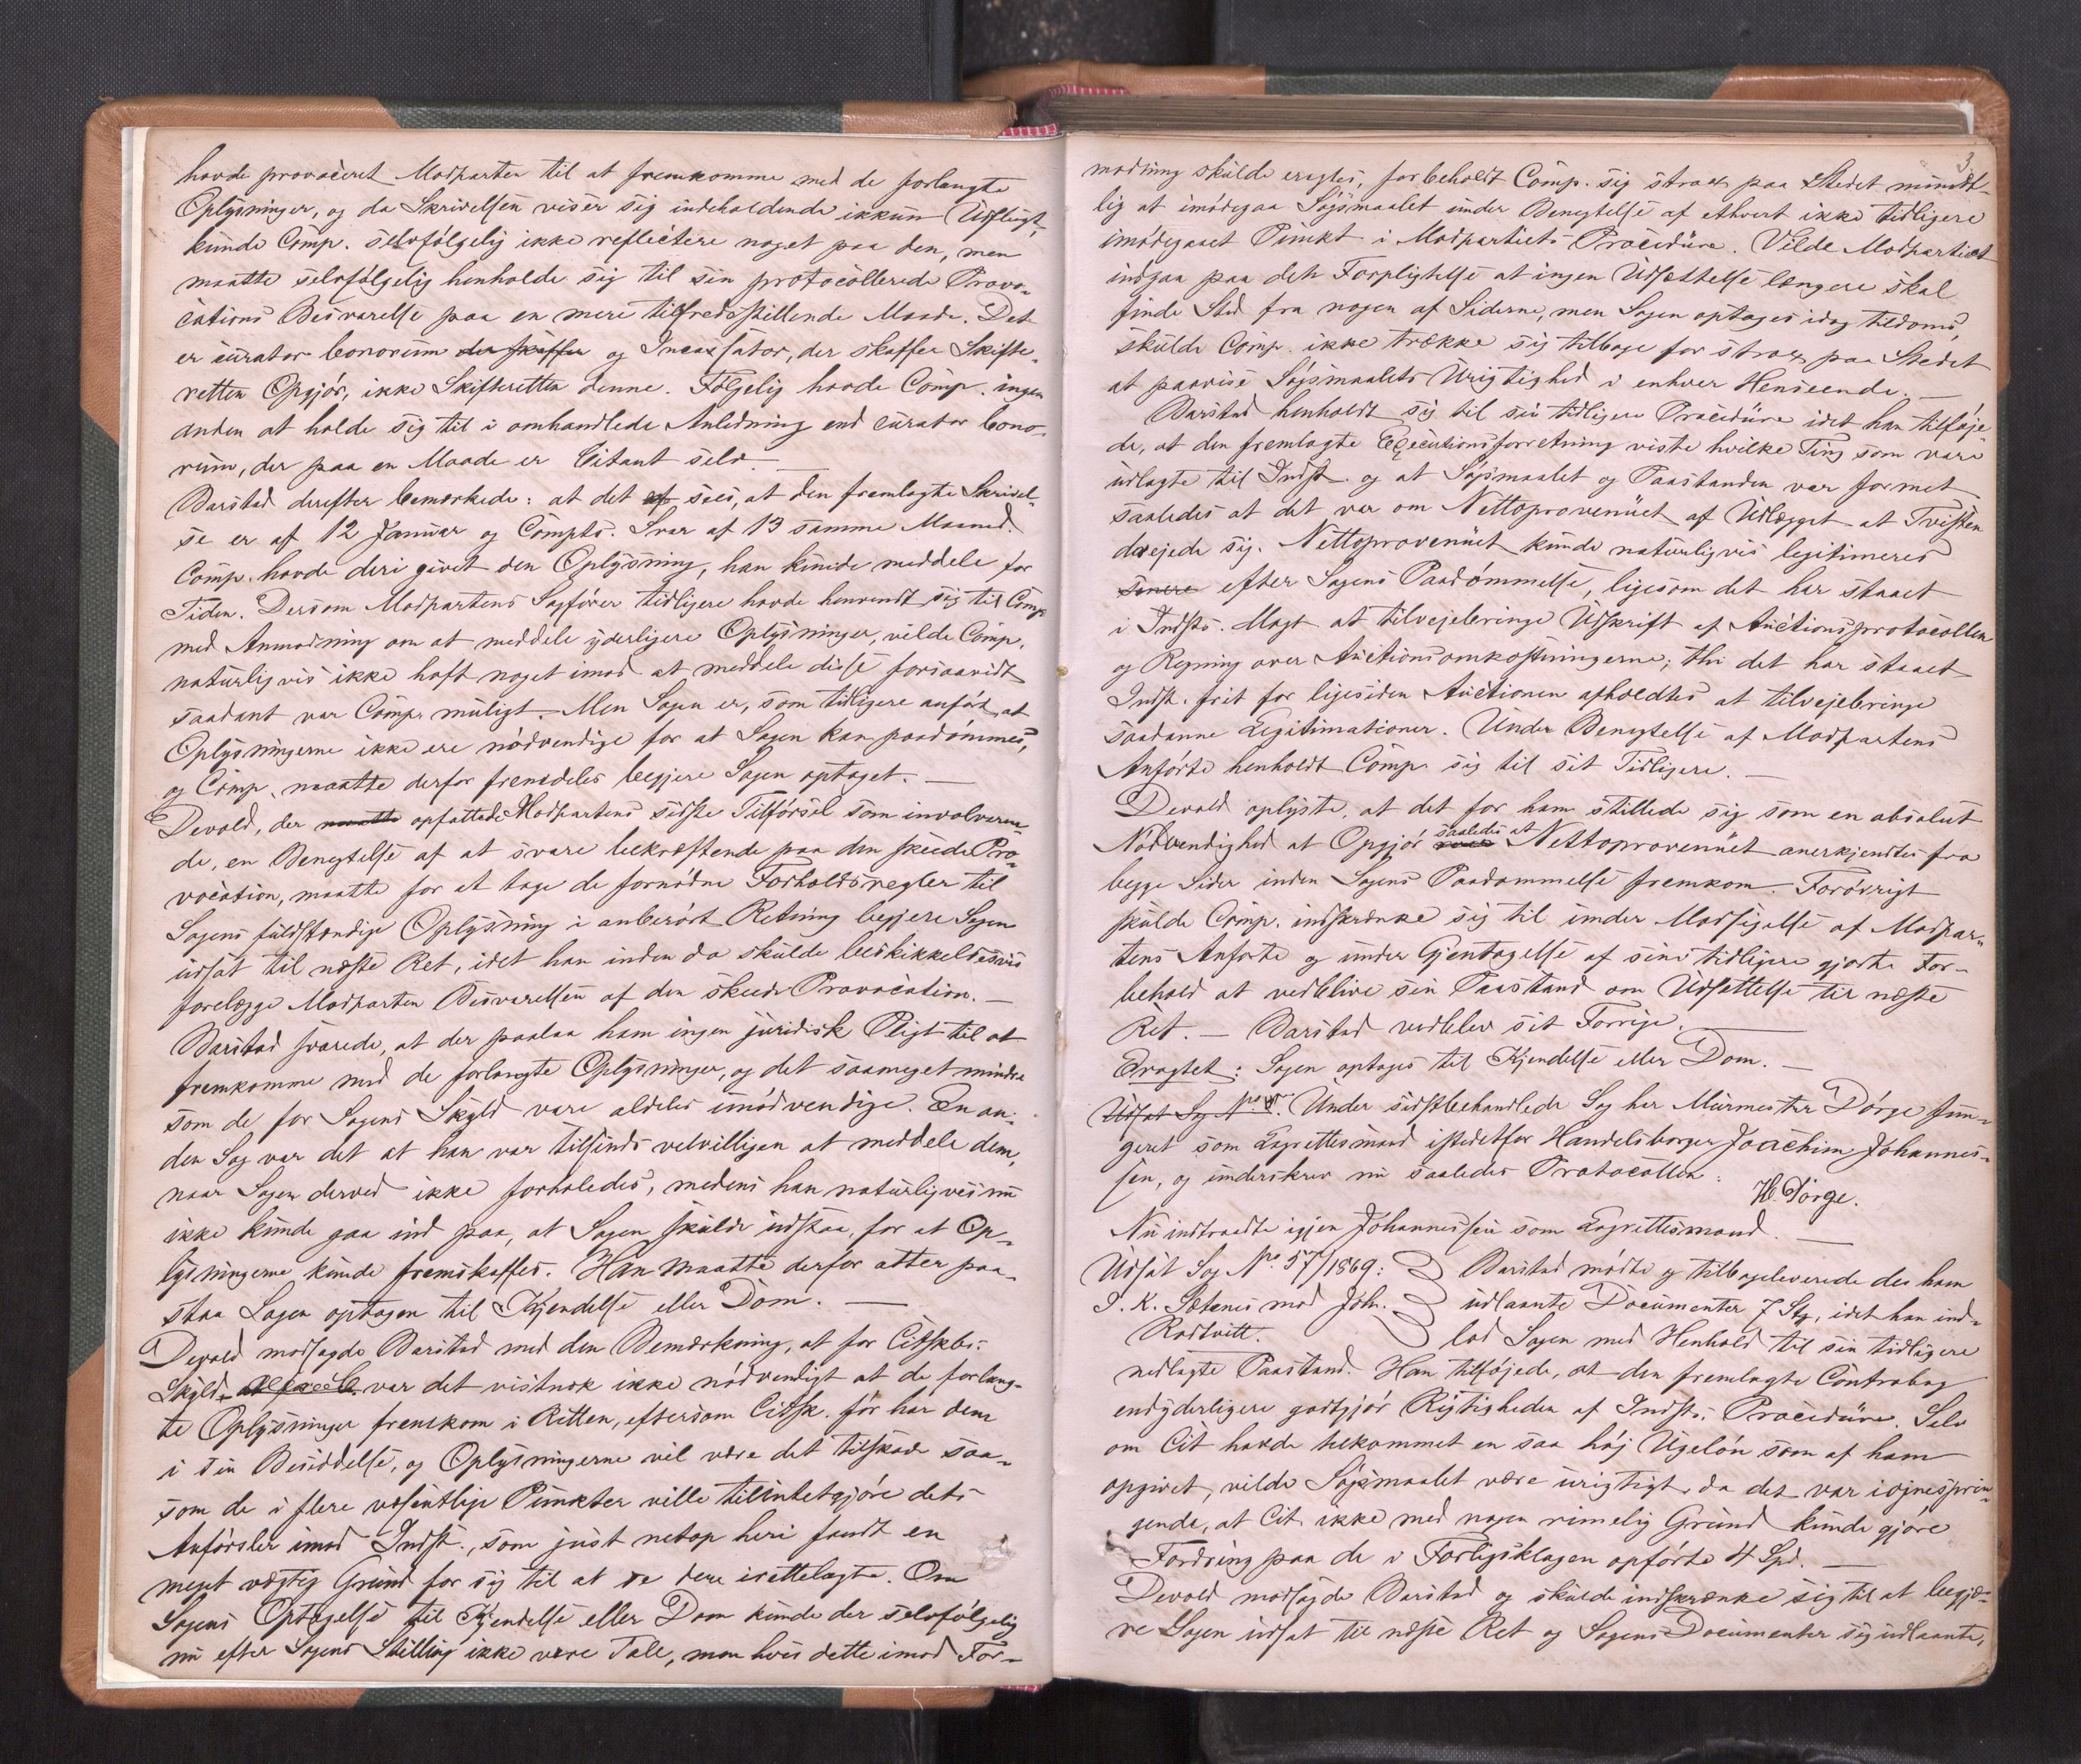 havde provoceret Modparten til at fremkomme med de forlangte
Oplysninger, og da Skrivelsen viser sig indeholdende ikkun Udflugt,
kunde Comp. selvfølgelig ikke reflectere noget paa den, men
maatte selvfølgelig henholde sig til sin protocollerede Provo-
cations Besvarelse paa en mere tilfredsstillende Maade. Det
er curator bonorum der skaffer og Incassator, der skaffer Skifte-
retten Opgjør, ikke Skifteretten denne. Følgelig havde Comp. ingen
anden at holde sig til i omhandlede Anledning end curator bono-
rum, der paa en Maade er Citant selv. —
Barstad derefter bemærkede: at det af sees, at den fremlagte Skrivel-
se er af 12 Januar og Compts. Svar af 13 samme Maaned.
Comp. havde deri givet den Oplysning, han kunde meddele for
Tiden. Dersom Modpartens Sagfører tidligere havde henvendt sig til Comp.
med Anmodning om at meddele yderligere Oplysninger, vilde Comp.
naturligvis ikke haft noget imod at meddele disse forsaavidt
saadant var Comp. muligt. Men Sagen er, som tidligere anført, at
Oplysningerne ikke ere nødvendige for at Sagen kan paadømmes,
og Comp. maatte derfor fremdeles begjere Sagen optaget. —
Devold, der maatte opfattede Modpartens sidste Tilførsel som involveren-
de, en Benegtelse af at svare bekræftende paa den skeede Pro-
vocation, maatte for at tage de fornødne Forholdsregler til
Sagens fuldstændige Oplysning i anberørt Retning begjere Sagen
udsat til næste Ret, idet han inden da skulde beskikkelsesvis
forelægge Modparten Besvarelsen af den skeede Provocation. —
Barstad svarede, at der paalaa ham ingen juridisk Pligt til at
fremkomme med de forlangte Oplysninger, og det saameget mindre
som de for Sagens Skyld vare aldeles unødvendige. En an-
den Sag var det at han var tilsinds velvilligen at meddele dem,
naar Sagen derved ikke forhaledes, medens han naturligvis nu
ikke kunde gaa ind paa, at Sagen skulde udstaa, for at Op-
lysningerne kunde fremskaffes. Han maatte derfor atter paa-
staa Sagen optagen til Kjendelse eller Dom. —
Devold modsagde Barstad med den Bemærkning, at for Citskbs.
Skyld var det vistnok ikke nødvendigt at de forlang-
te Oplysninger fremkom i Retten, eftersom Citsk. før har dem
i sin Besiddelse, og Oplysningerne vil være det tilskade saa-
som de i flere væsentlige Punkter ville tilintetgjøre dets
Anførsler imod Indst., som just netop heri fandt en
meget vægtig Grund for sig til at se dem irettelagte. Om
Sagens Optagelse til Kjendelse eller Dom kunde der selvfølgelig
nu efter Sagens Stilling ikke være Tale, men hvis dette imod For-
3
modning skulde eragtes, forbeholdt Comp. sig strax paa Stedet mundt-
lig at imødegaa Søgsmaalet under Benegtelse af ethvert ikke tidligere
imødegaaet Punkt i Modpartiets Procedure. Vilde Modpartiet
indgaa paa den Forpligtelse at ingen Udsættelse længere skal
finde Sted fra nogen af Siderne, men Sagen optages idag tildoms,
skulde Comp. ikke trække sig tilbage for strax paa Stedet
at paavise Søgsmaalets Urigtighed i enhver Henseende. —
Barstad henholdt sig til sin tidligere Procedure idet han tilføje-
de, at den fremlagte Executionsforretning viste hvilke Ting som vare
udlagte til Indst. og at Søgsmaalet og Paastanden var formet
saaledes at det var om Nettoprovenüet af Udlægget at Tvisten
drejede sig. Nettoprovenüet kunde naturligvis legitimeres
senere efter Sagens Paadømmelse, ligesom det har staaet
i Indsts. Magt at tilvejebringe Udskrift af Auctionsprotocollen
og Regning over Auctionsomkostningerne; thi det har staaet
Indst. frit for ligesiden Auctionen afholdtes at tilvejebringe
saadanne Legitimationer. Under Benegtelse af Modpartens
Anførte henholdt Comp. sig til sit Tidligere. —
Devold oplyste, at det for ham stillede sig som en absolut
Nødvendighed at Opgjør over saaledes at Nettoprovenüet anerkjendtes fra
begge Sider inden Sagens Paadømmelse fremkom. Forøvrigt
skulde Comp. indskrænke sig til under Modsigelse af Modpar-
tens Anførte og under Gjentagelse af sine tidligere gjorte For-
behold at vedblive sin Paastand om Udsættelse til næste
Ret. — Barstad vedblev sit Forrige. —
Eragtet: Sagen optages til Kjendelse eller Dom. —
Udsat Sag No. Under sidstbehandlede Sag har Murmester Dørge fun-
geret som Lagrettesmand istedetfor Handelsborger Joachim Johannes-
sen, og underskrev nu saaledes Protocollen:
H. Dørge.
Nu indtraadte igjen Johannessen som Lagrettesmand. —
Udsat Sag No. 57/1869: Barstad mødte og tilbageleverede de ham
J. K. Sætenes mod Joh. udlaante Documenter 7 Stk, idet han ind-
Rødtvitt. lod Sagen med Henhold til sin tidligere
nedlagte Paastand. Han tilføjede, at den fremlagte Contrabog
endyderligere godtgjør Rigtigheden af Indsts. Procedure. Selv
om Cit havde bekommet en saa høj Ugeløn som af ham
opgivet, vilde Søgsmaalet være urigtigt, da det var iøjnesprin-
gende, at Cit. ikke med nogen rimelig Grund kunde gjøre
Fordring paa de i Forligsklagen opførte 4 Spd. —
Devold modsagde Barstad og skulde indskrænke sig til at begjæ-
re Sagen udsat til næste Ret og Sagens Documenter sig udlaante,